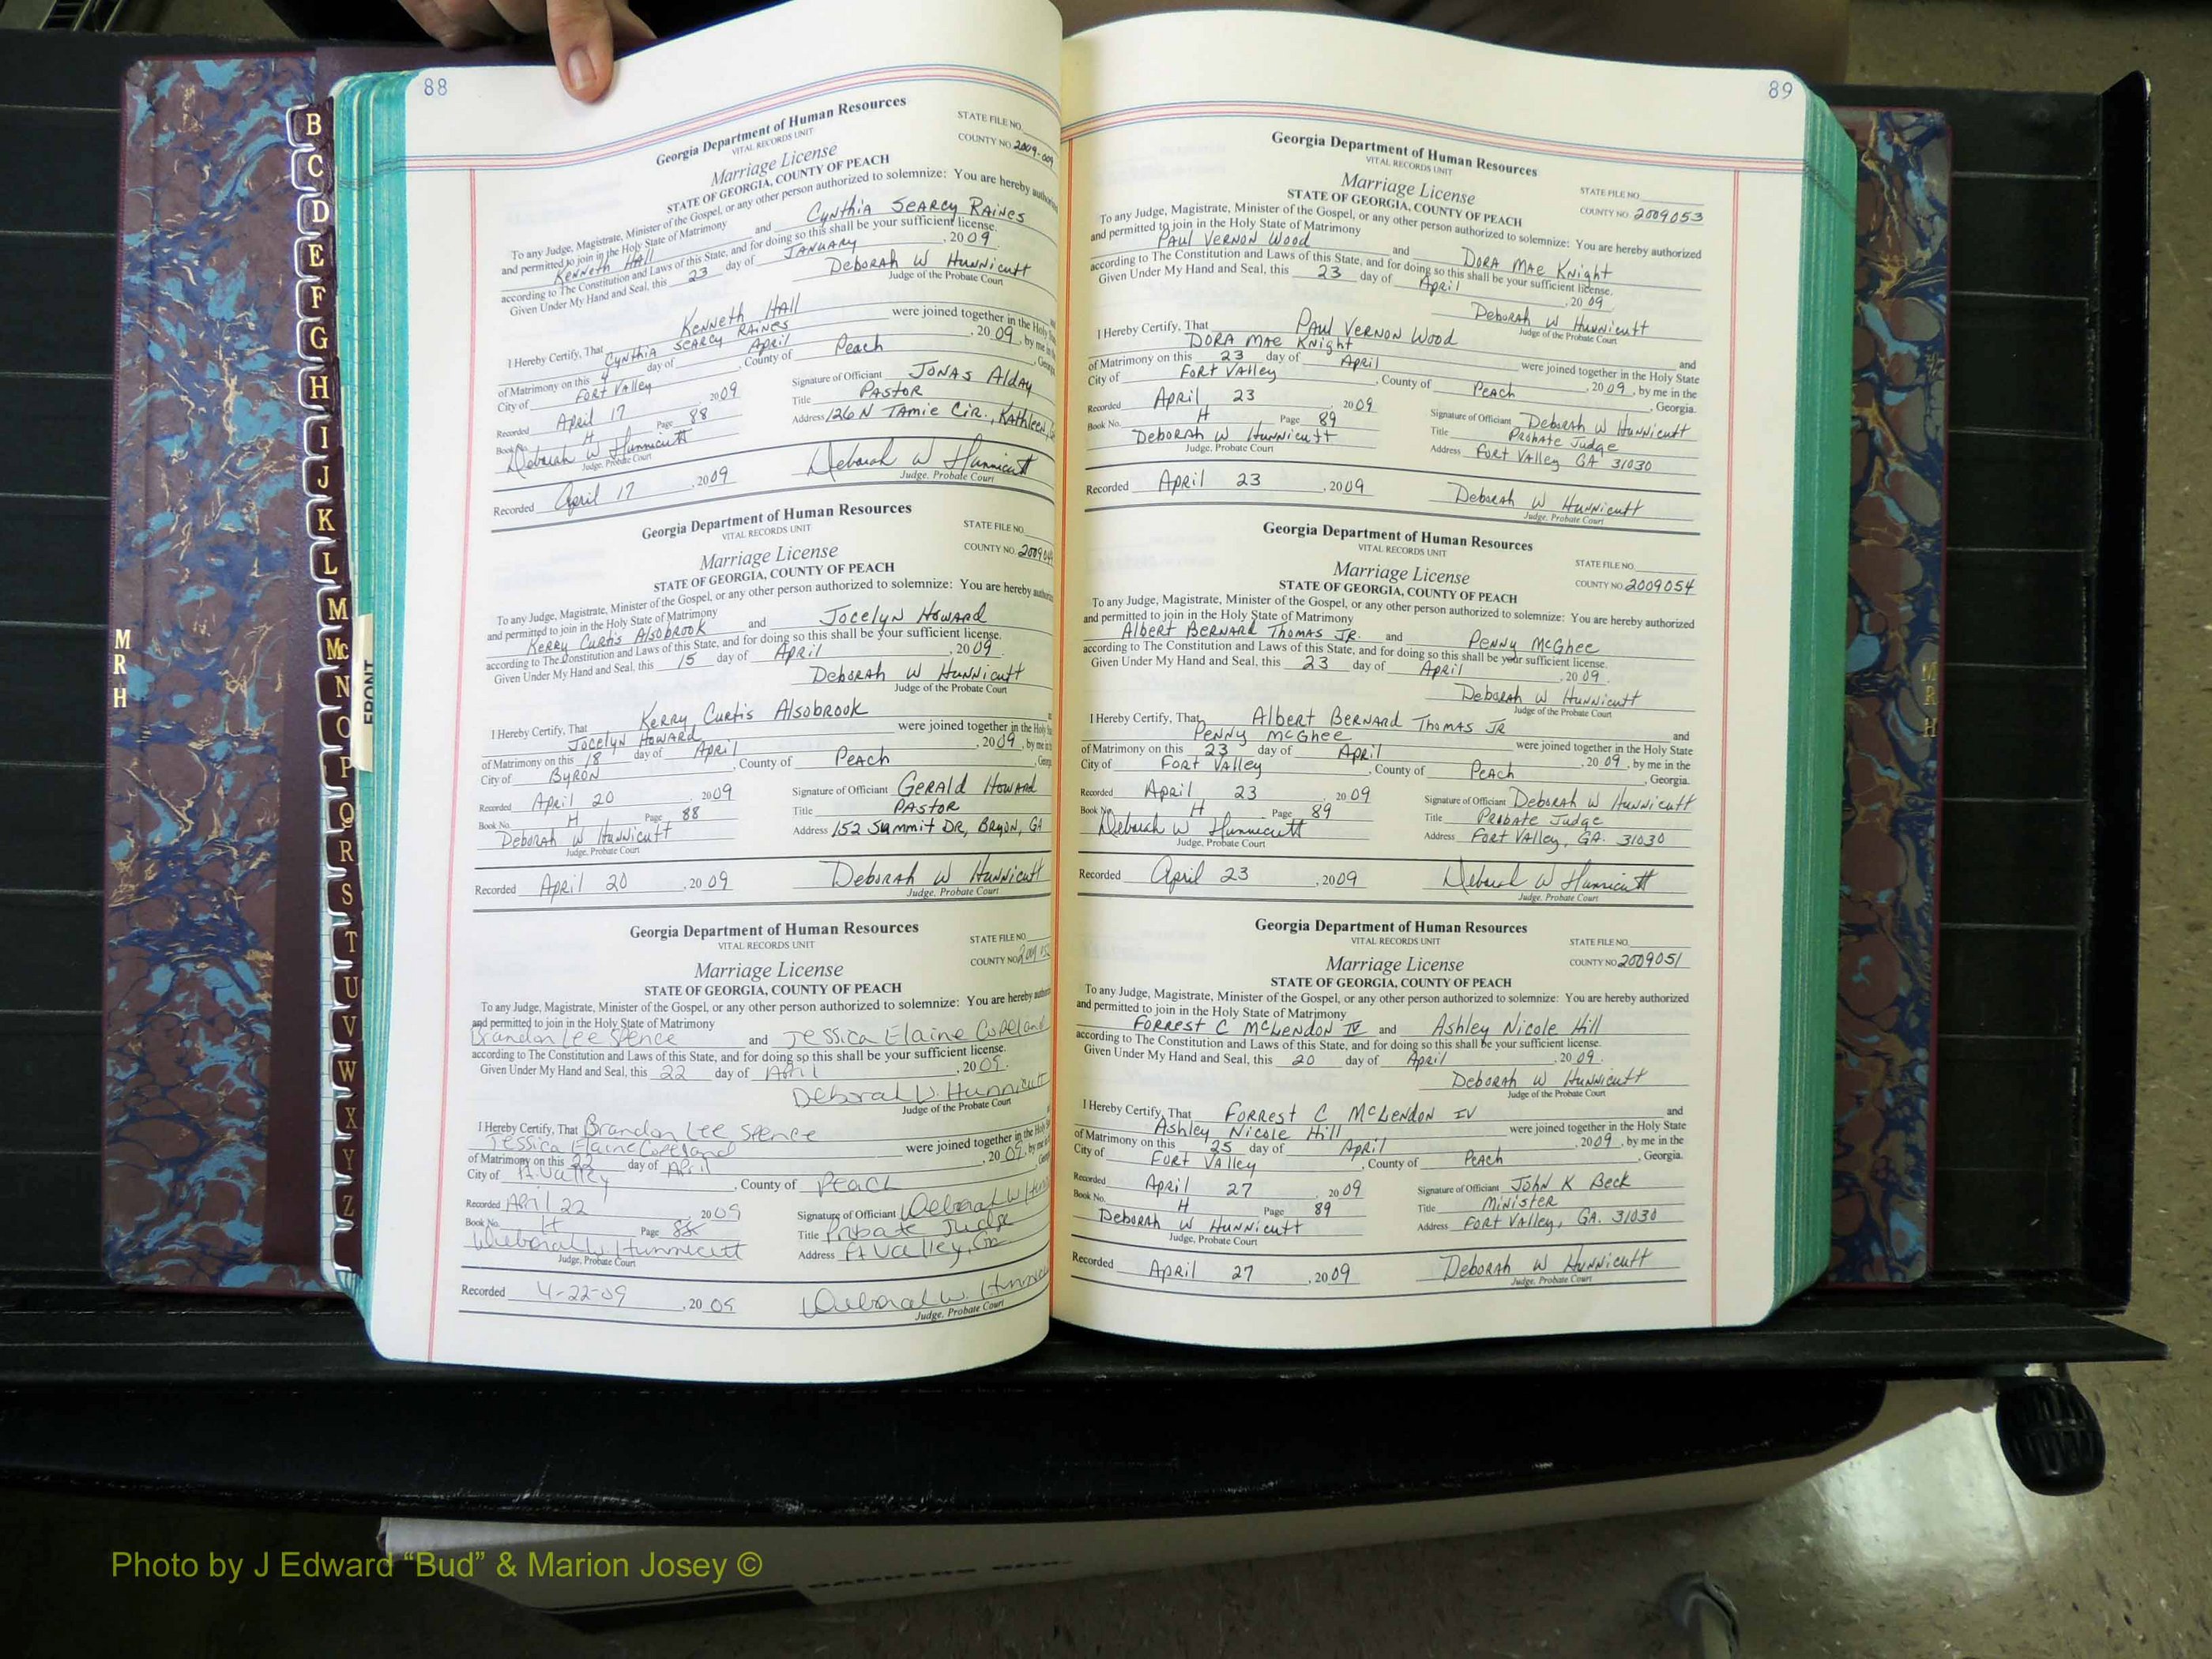 88
Georgia Department of Human Resources
VITAL RECORDS UNIT
STATE FILE NO.
COUNTY NO. 2009-009
Marriage License
STATE OF GEORGIA, COUNTY OF PEACH
To any Judge, Magistrate, Minister of the Gospel, or any other person authorized to solemnize: You are hereby
and permitted to join in the Holy State of Matrimony
Kenneth Hall and Cynthia Searcy Raines
according to The Constitution and Laws of this State, and for doing so this shall be your sufficient license.
Given Under My Hand and Seal, this 23 day of January, 2009
Deborah W Hunnicutt
Judge of the Probate Court
I Hereby Certify, That Kenneth Hall
Cynthia Searcy Raines were joined together in the Holy
of Matrimony on this 4 day of April, 2009, by me in
City of Fort Valley, County of Peach
Recorded April 17 2009 Signature of Officiant Jonas Alday
Book No. H Page 88 Title Pastor
Deborah W Hunnicutt Address 126 N Tamie Cir., Kathleen,
Judge, Probate Court
Recorded April 17, 2009 Deborah W Hunnicutt
Judge, Probate Court
Georgia Department of Human Resources
VITAL RECORDS UNIT
STATE FILE NO.
COUNTY NO.
Marriage License
STATE OF GEORGIA, COUNTY OF PEACH
To any Judge, Magistrate, Minister of the Gospel, or any other person authorized to solemnize: You are hereby
and permitted to join in the Holy State of Matrimony
Kerry Curtis Alsobrook and Jocelyn Howard
according to The Constitution and Laws of this State, and for doing so this shall be your sufficient license.
Given Under My Hand and Seal, this 15 day of April, 2009
Deborah W Hunnicutt
Judge of the Probate Court
I Hereby Certify, That Kerry Curtis Alsobrook
Jocelyn Howard were joined together in the Holy
of Matrimony on this 18 day of April, 2009, by me in
City of Byron, County of Peach
Recorded April 20 2009 Signature of Officiant Gerald Howard
Book No. H Page 88 Title Pastor
Deborah W Hunnicutt Address 152 Summit Dr, Bryon, GA
Judge, Probate Court
Recorded April 20, 2009 Deborah W Hunnicutt
Judge, Probate Court
Georgia Department of Human Resources
VITAL RECORDS UNIT
STATE FILE NO.
COUNTY NO.
Marriage License
STATE OF GEORGIA, COUNTY OF PEACH
To any Judge, Magistrate, Minister of the Gospel, or any other person authorized to solemnize: You are hereby
and permitted to join in the Holy State of Matrimony
Brandon Lee Spence and Jessica Elaine Copeland
according to The Constitution and Laws of this State, and for doing so this shall be your sufficient license.
Given Under My Hand and Seal, this 22 day of April, 2009.
Deborah W. Hunnicutt
Judge of the Probate Court
I Hereby Certify, That Brandon Lee Spence
Jessica Elaine Copeland were joined together in the Holy
of Matrimony on this 22 day of April, 2009, by me in
City of Ft Valley, County of Peach
Recorded April 22 2009 Signature of Officiant Deborah W Hunn
Book No. H Page 88 Title Probate Judge
Deborah W. Hunnicutt Address Ft Valley, Ga.
Judge, Probate Court
Recorded 4-22-09, 2009 Deborah W. Hunnic
Judge, Probate Court
89
Georgia Department of Human Resources
VITAL RECORDS UNIT
STATE FILE NO.
COUNTY NO. 2009053
Marriage License
STATE OF GEORGIA, COUNTY OF PEACH
To any Judge, Magistrate, Minister of the Gospel, or any other person authorized to solemnize: You are hereby authorized
and permitted to join in the Holy State of Matrimony
Paul Vernon Wood and Dora Mae Knight
according to The Constitution and Laws of this State, and for doing so this shall be your sufficient license.
Given Under My Hand and Seal, this 23 day of April, 2009
Deborah W Hunnicutt
Judge of the Probate Court
I Hereby Certify, That Paul Vernon Wood and
Dora Mae Knight were joined together in the Holy State
of Matrimony on this 23 day of April, 2009, by me in the
City of Fort Valley, County of Peach, Georgia.
Recorded April 23 2009 Signature of Officiant Deborah W Hunnicutt
Book No. H Page 89 Title Probate Judge
Deborah W Hunnicutt Address Fort Valley GA 31030
Judge, Probate Court
Recorded April 23, 2009 Deborah W Hunnicutt
Judge, Probate Court
Georgia Department of Human Resources
VITAL RECORDS UNIT
STATE FILE NO.
COUNTY NO. 2009054
Marriage License
STATE OF GEORGIA, COUNTY OF PEACH
To any Judge, Magistrate, Minister of the Gospel, or any other person authorized to solemnize: You are hereby authorized
and permitted to join in the Holy State of Matrimony
Albert Bernard Thomas Jr. and Penny McGhee
according to The Constitution and Laws of this State, and for doing so this shall be your sufficient license.
Given Under My Hand and Seal, this 23 day of April, 2009.
Deborah W Hunnicutt
Judge of the Probate Court
I Hereby Certify, That Albert Bernard Thomas Jr and
Penny McGhee were joined together in the Holy State
of Matrimony on this 23 day of April, 2009, by me in the
City of Fort Valley, County of Peach, Georgia.
Recorded April 23 2009 Signature of Officiant Deborah W Hunnicutt
Book No. H Page 89 Title Probate Judge
Deborah W Hunnicutt Address Fort Valley, GA. 31030
Judge, Probate Court
Recorded April 23, 2009 Deborah W Hunnicutt
Judge, Probate Court
Georgia Department of Human Resources
VITAL RECORDS UNIT
STATE FILE NO.
COUNTY NO. 2009051
Marriage License
STATE OF GEORGIA, COUNTY OF PEACH
To any Judge, Magistrate, Minister of the Gospel, or any other person authorized to solemnize: You are hereby authorized
and permitted to join in the Holy State of Matrimony
Forrest C McLendon IV and Ashley Nicole Hill
according to The Constitution and Laws of this State, and for doing so this shall be your sufficient license.
Given Under My Hand and Seal, this 20 day of April, 2009.
Deborah W Hunnicutt
Judge of the Probate Court
I Hereby Certify, That Forrest C McLendon IV and
Ashley Nicole Hill were joined together in the Holy State
of Matrimony on this 25 day of April, 2009, by me in the
City of Fort Valley, County of Peach, Georgia.
Recorded April 27 2009 Signature of Officiant John K Beck
Book No. H Page 89 Title Minister
Deborah W Hunnicutt Address Fort Valley, GA. 31030
Judge, Probate Court
Recorded April 27, 2009 Deborah W Hunnicutt
Judge, Probate Court
B
C
D
E
F
G
H
I
J
K
L
M
Mc
N
O
P
Q
R
S
T
U
V
W
X
Y
Z
FRONT
M
R
H
M
R
H
Photo by J Edward “Bud” & Marion Josey ©